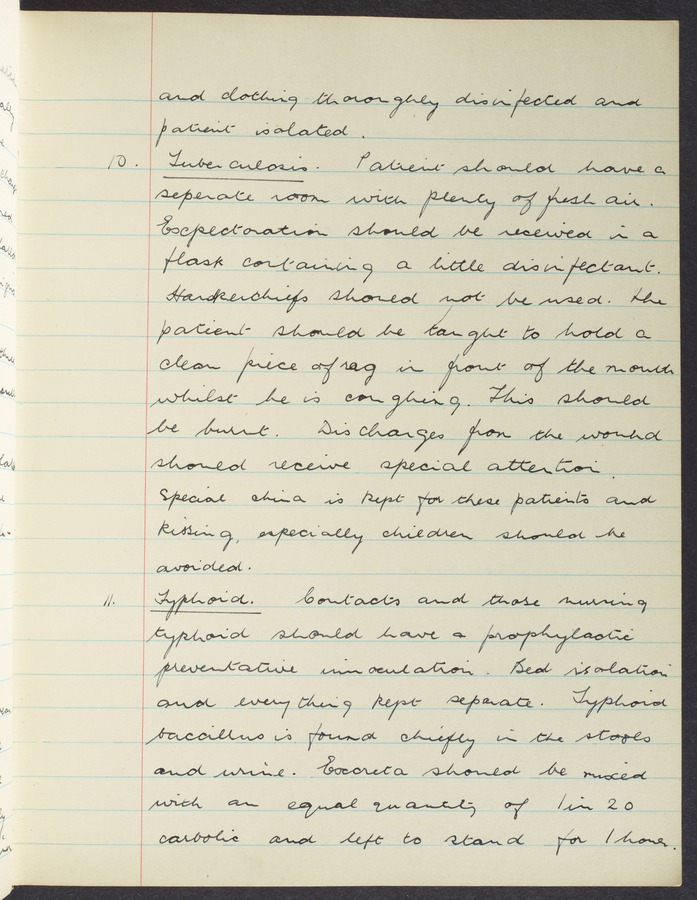 and clothing thoroughly disinfected and
patient isolated.
10. Tuberculosis. Patient should have a
seperate room with plenty of fresh air.
Excpectoration should be received in a
flask containing a little disinfectant.
Handkerchiefs should not be used. The
patient should be taught to hold a
clean piece of rag in front of the mouth
whilst he is coughing. This should
be burnt. Discharges from the wound
should receive special attention.
Special china is kept for these patients and
kissing, especially children should be
avoided.
11. Typhoid. Contacts and those nursing
typhoid should have a prophylactic
preventative innoculation. Bed isolation
and everything kept seperate. Typhoid
baccillus is found chiefly in the stools
and urine. Excreta should be mixed
with an equal quantity of 1 in 20
carbolic and left to stand for 1 hour.